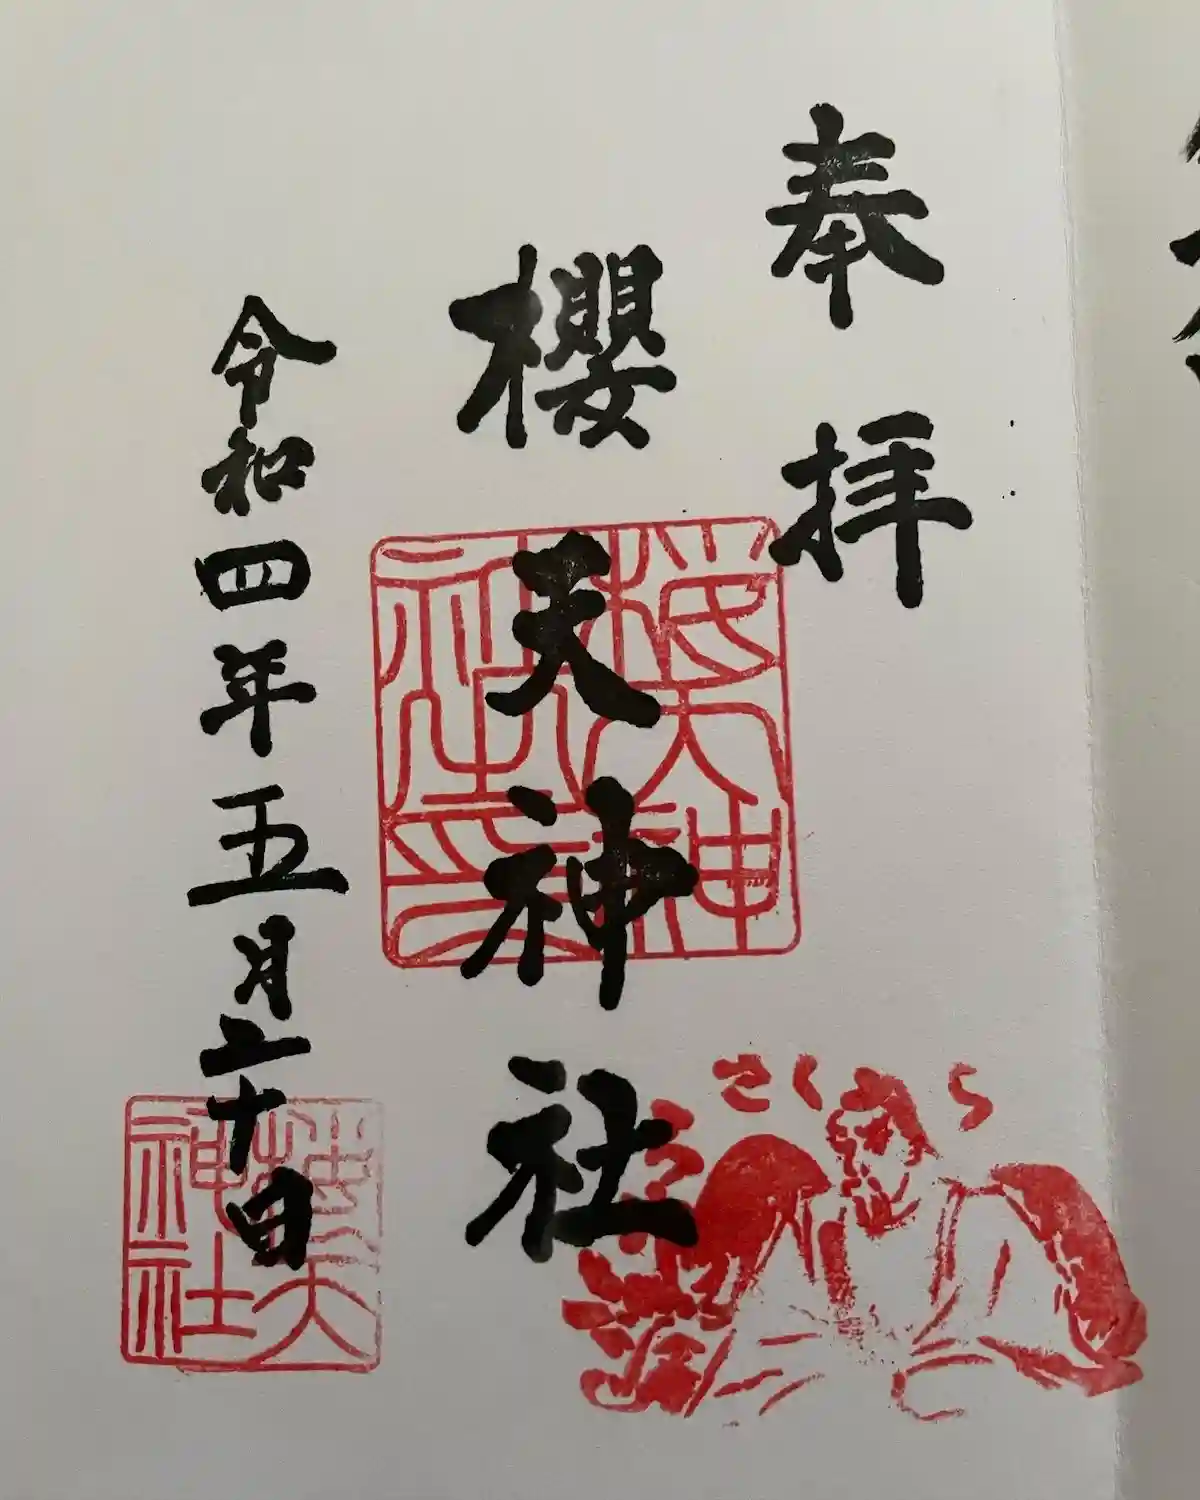 奉拝
櫻天神社
令和四年五月二十日
天神
社之印
天
神社
さくら